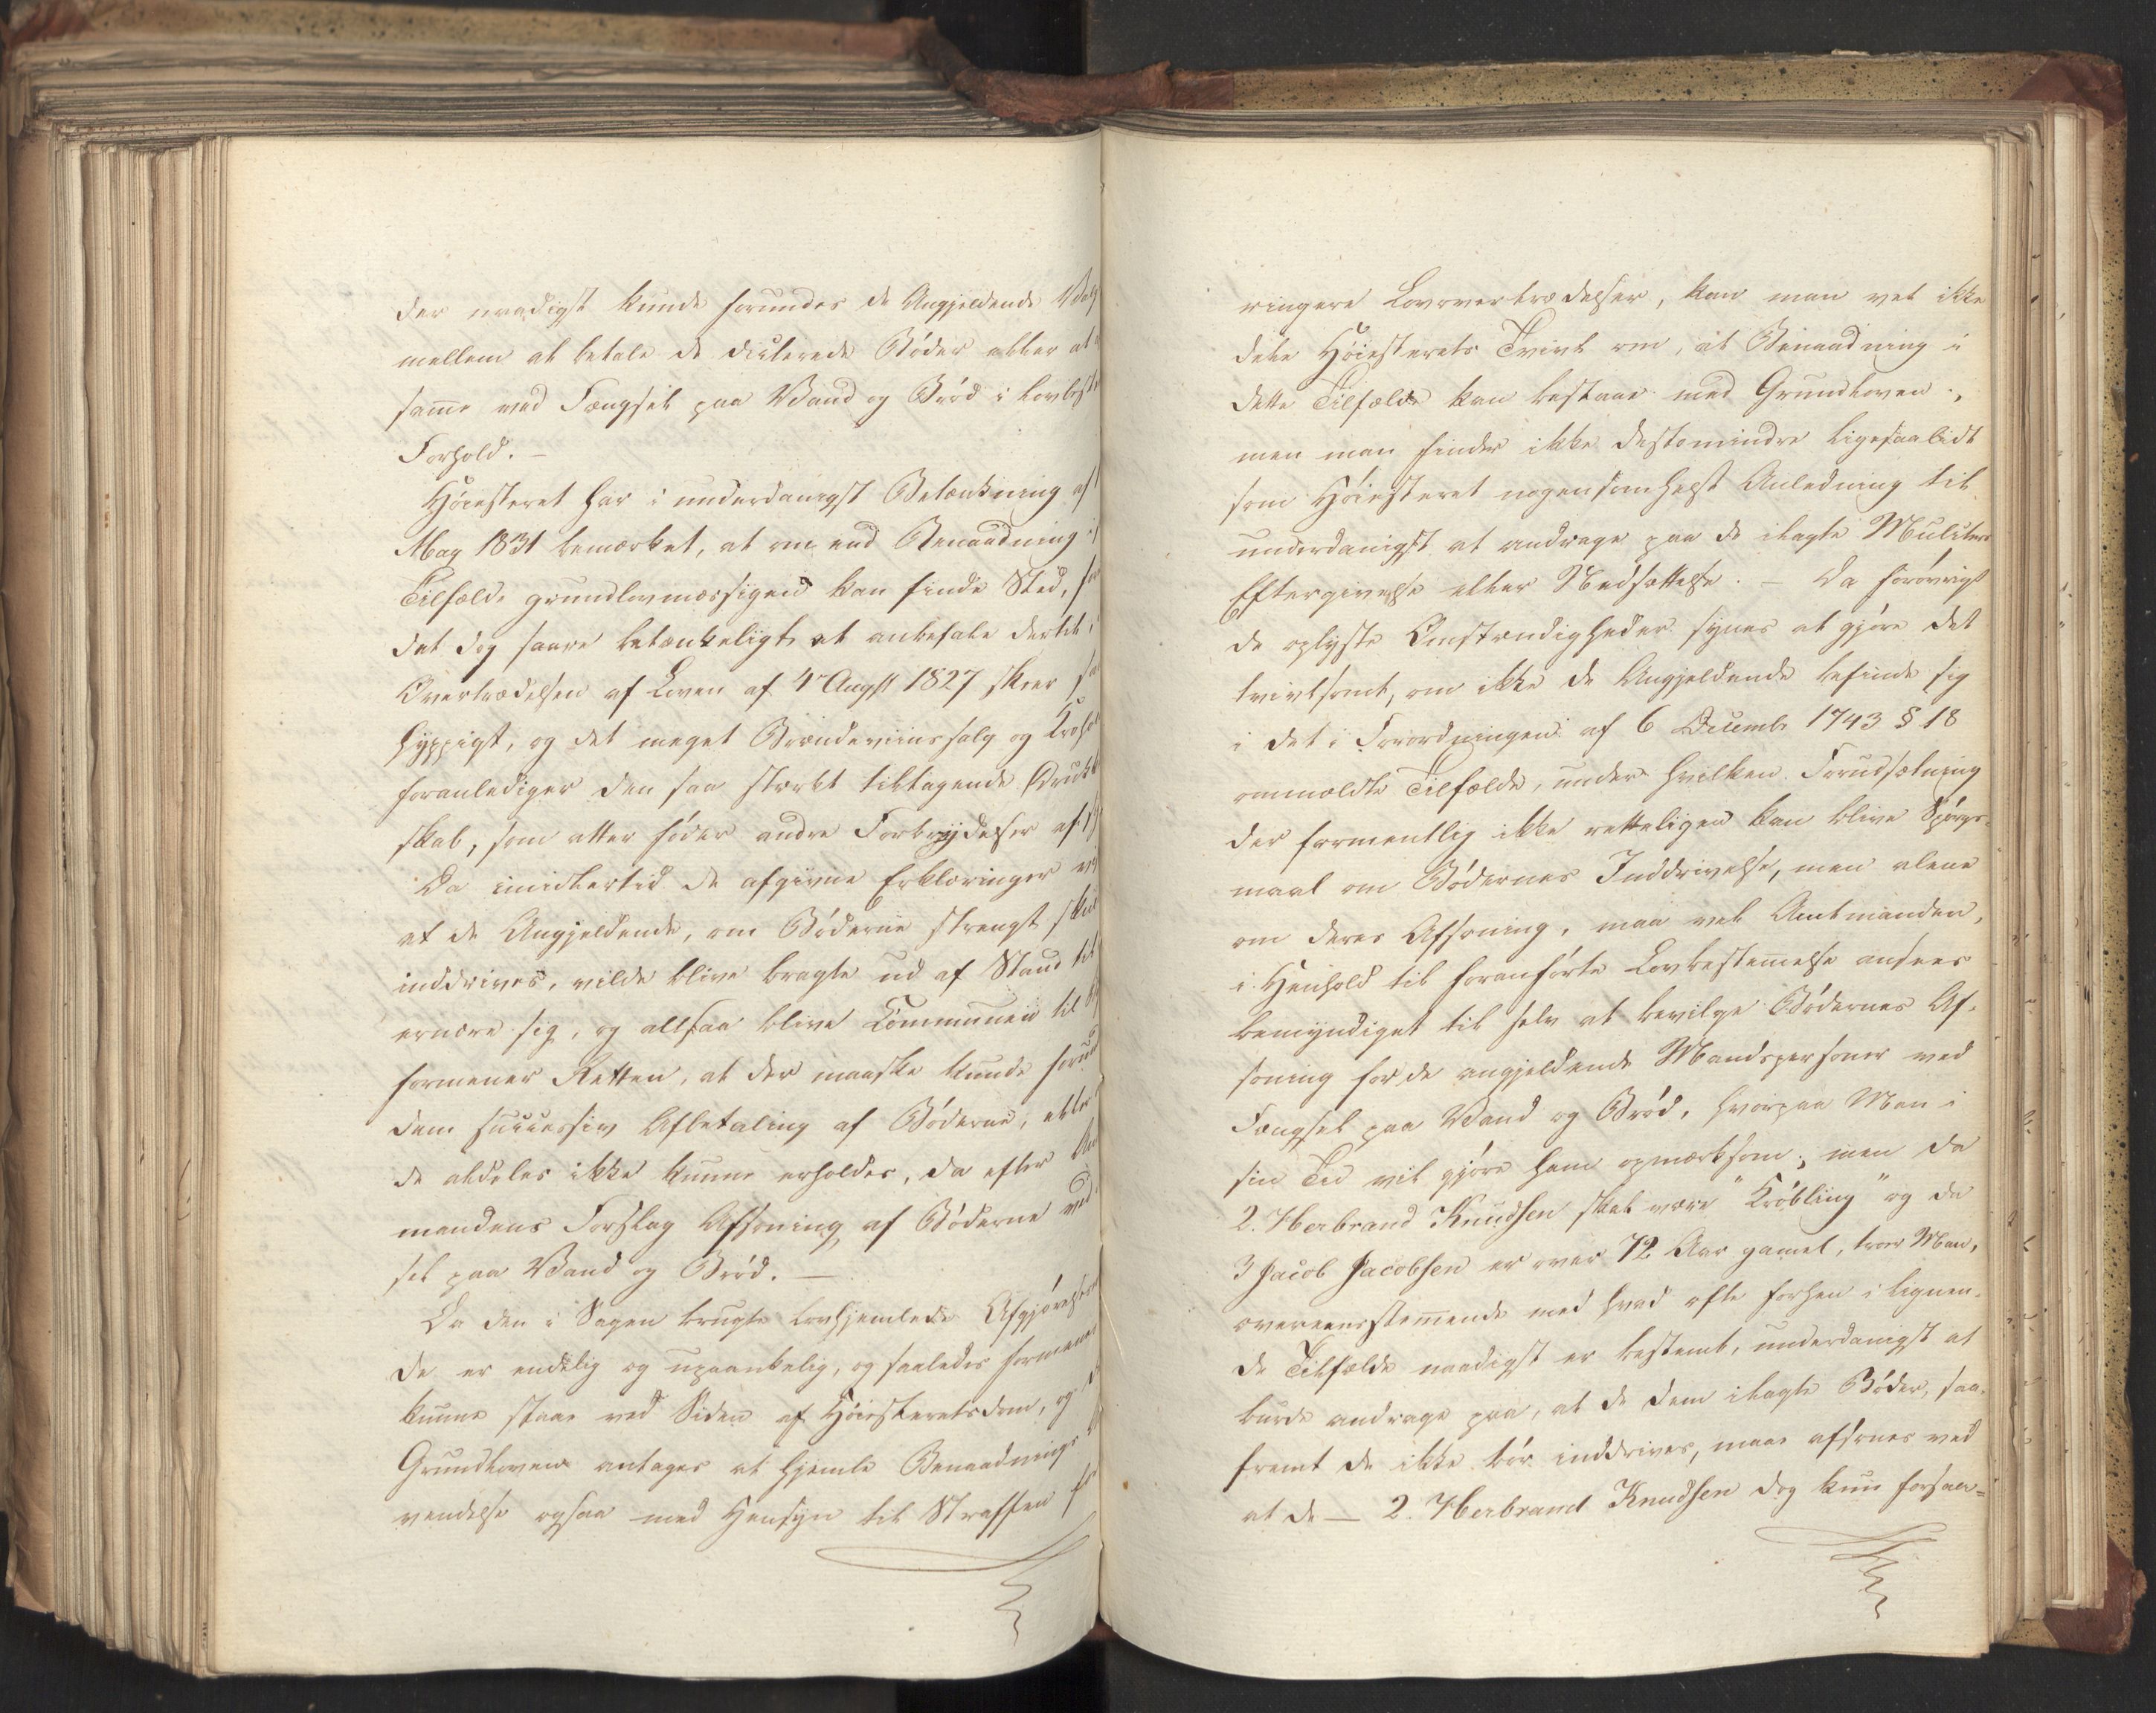 der naadigst kunde forundes de Angjeldende Valg
mellem at betale de dicterede Bøder eller at
samme ved Fængsel paa Vand og Brød i lovbest
Forhold. —
Høiesteret har i underdanigst Betænkning af
Mag 1831 bemærket, at om end Benaadning i
Tilfælde grundlovmæssigen kan finde Sted,
det dog saare betænkeligt at anbefale dertil,
Overtrædelsen af Loven af 4 Augst 1827 skeer
hyppigt, og det meget Brændeviinssalg og Kroh
foranlediger den saa stærkt tiltagende Drukk
skab, som atter føder andre Forbrydelser af
Da imidlertid de afgivne Erklæringer
at de Angjeldende, om Bøderne strengt skul
inddrives, vilde blive bragte ud af Stand til
ernære sig, og altsaa blive Communen til
formener Retten, at der maaske kunde forund
dem successiv Afbetaling af Bøderne, eller
de aldeles ikke kunne erholdes, da efter Am
mandens Forslag Afsoning af Bøderne ved
sel paa Vand og Brød. —
Da den i Sagen brugte lovhjemlede Afgjørelses
de er endelig og upaankelig, og saaledes formenes
kunne staae ved Siden af Høiesteretsdom, og
Grundloven antages at hjemle Benaadnings
vendelse ogsaa med Hensyn til Straffen
ringere Lovovertrædelser, kan man vel ikke
dele Høiesterets Tvivl om, at Benaadning i
dette Tilfælde kan bestaae med Grundloven,
men man finder ikke destomindre ligesaalidt
som Høiesteret nogensomhelst Anledning til
underdanigst at andrage paa de ilagte Mulcters
Eftergivelse eller Nedsættelse. — Da forøvrigt
de oplyste Omstændigheder synes at gjøre det
tvivlsomt, om ikke de Angjeldende befinde sig
i det i Forordningen af 6 Decembr 1743 § 18
ommeldte Tilfælde, under hvilken Forudsætning
der formentlig ikke retteligen kan blive Spørgs-
maal om Bødernes Inddrivelse, men alene
om deres Afsoning, maa vel Amtmanden,
i Henhold til foranførte Lovbestemmelse ansees
bemyndiget til selv at bevilge Bødernes Af-
soning for de angjeldende Mandspersoner ved
Fængsel paa Vand og Brød, hvorpaa Man i
sin Tid vil gjøre ham opmærksom; men da
2. Herbrand Knudsen skal være "Krøbling" og da
3 Jacob Jacobsen er over 72 Aar gamel, troer Man,
overeensstemmende med hvad ofte forhen i lignen-
de Tilfælde naadigst er bestemt, underdanigst at
burde andrage paa, at de dem ilagte Bøder, saa-
fremt de ikke bør inddrives, maae afsones ved
at de — 2. Herbrand Knudsen dog kun forsaa-